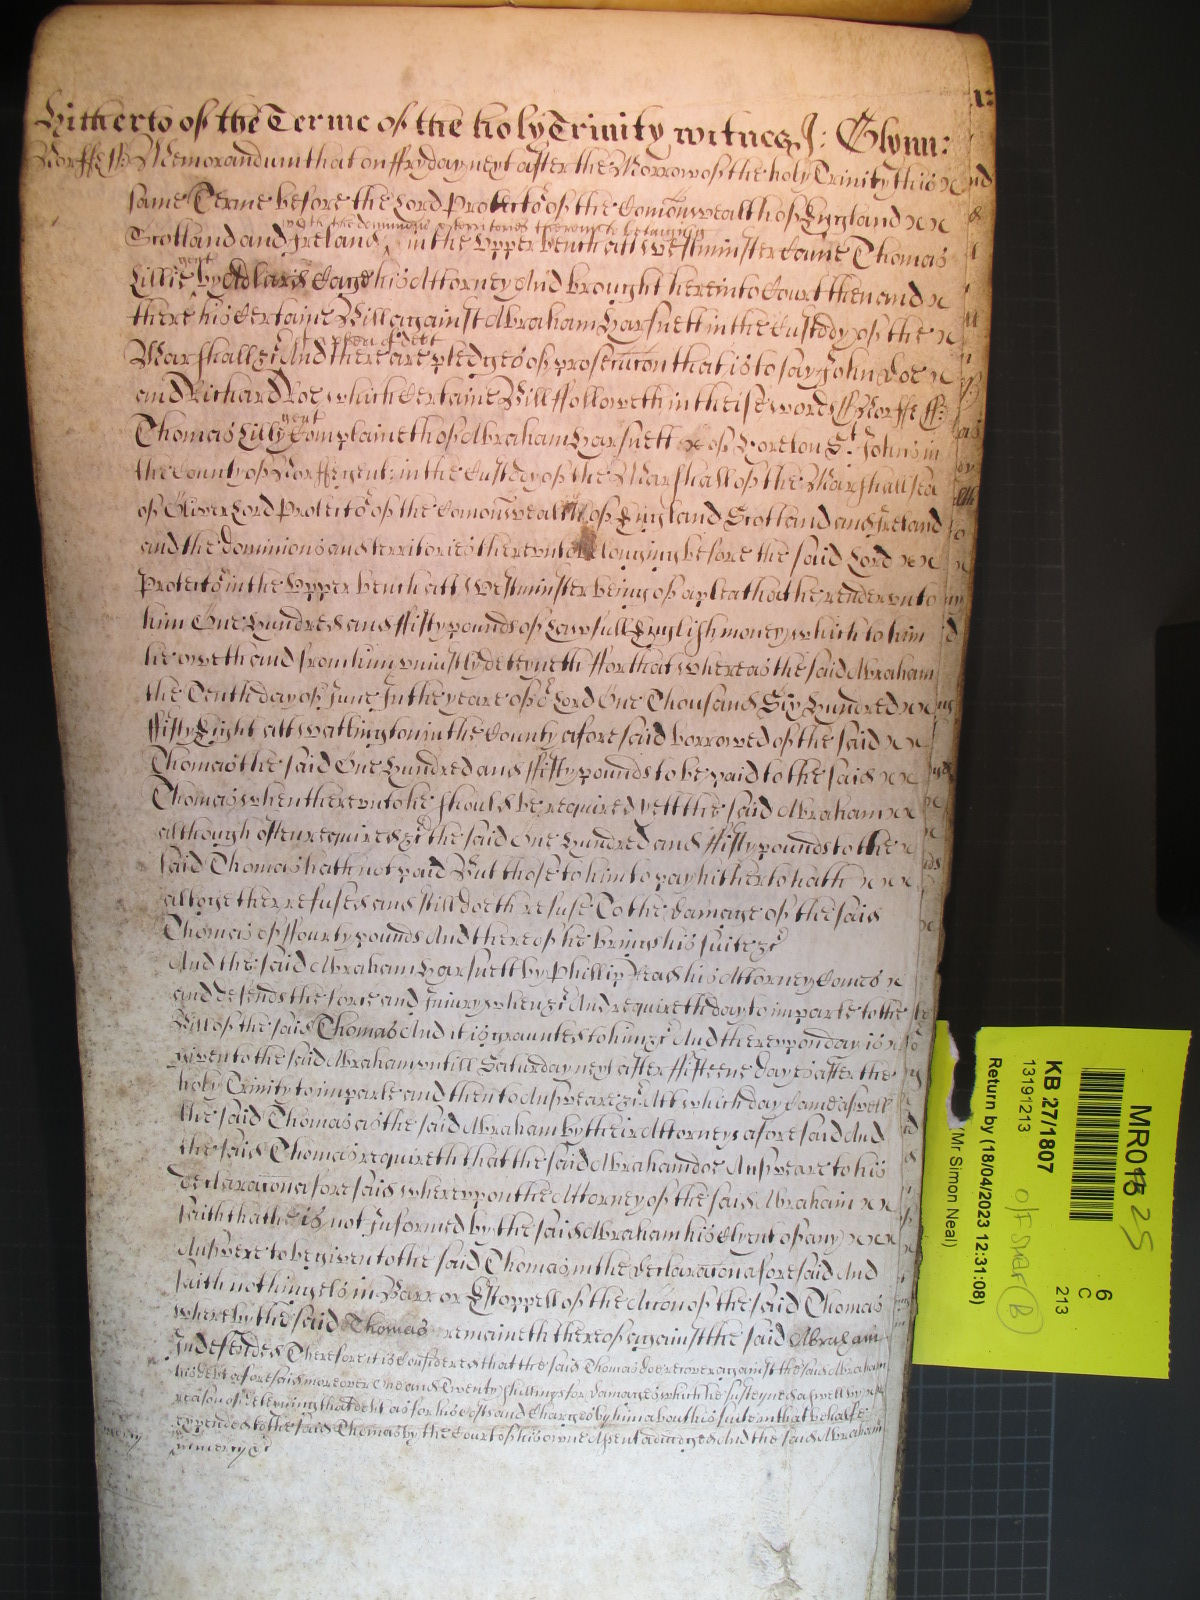 Hitherto of the Terme of the holy Trinity witnes J: Glynn:
Norff ss Memorandum that on ffryday next after the Morrow of the holy Trinity this
same Terme before the Lord Protector of the Comonwealth of England
with the dominions & territories thereunto belonging
Scotland and Ireland in the Upper bench att Westminster Came Thomas
gent
Lillie by Adlard Cage his Attorney And brought here into Court then and
there his Certaine Bill against Abraham Harsnett in the Custody of the
of a plea of debt
Marshall &c And there are pledges of prosecucon that is to say John Doe
and Richard Roe which Certaine Bill ffolloweth in theise words ss Norff ss:
gent
Thomas Lilly Complaineth of Abraham Harsnett of Moreton St. Johns in
the County of Norff gent: in the Custody of the Marshall of the Marshallsea
of Oliver Lord Protector of the Comonwealth of England Scotland and Ireland
and the dominions and territories thereunto belonging before the said Lord
Protector in the Upper bench att Westminster being of a plea that he render unto
him One Hundred and ffifty pounds of Lawfull English money which to him
he oweth and from him uniustly deteyneth ffor that whereas the said Abraham
the Tenth day of June In the yeare of or Lord One Thousand Six Hundred
ffifty Eight att Wathington in the County aforesaid borrowed of the said
Thomas the said One Hundred and ffifty pounds to be paid to the said
Thomas when thereunto he should be required yett the said Abraham
although often required &c the said One Hundred and ffifty pounds to the
said Thomas hath not paid But those to him to pay hitherto hath
altogether refused and still doeth refuse To the damage of the said
Thomas of ffourty pounds And thereof he brings his suite &c
And the said Abraham Harsnett by Phillip Read his Attorney Comes
and defends the force and Iniury when &c And requireth day to imparle to the
Bill of the said Thomas And it is graunted to him &c And thereupon day is
given to the said Abraham untill Saturday next after ffifteene dayes after the
holy Trinity to imparle and then to Answeare &c Att which day Came aswell
the said Thomas as the said Abraham by their Attorneys aforesaid And
the said Thomas requireth that the said Abraham doe Answeare to his
declaracon aforesaid whereupon the Attorney of the said Abraham
saith that he is not Informed by the said Abraham his Clyent of any
Answere to be given to the said Thomas in the declaracon aforesaid And
saith nothing els in Barr or Estoppell of the Accon of the said Thomas
whereby the said Thomas remaineth thereof against the said Abraham
Indefended Therefore it is Considered that the said Thomas doe recover against the said Abraham
his debt aforesaid moreover One and Twenty shillings for damages which he susteyned aswell by
reason of deteyning that debt as for his costs and Charges by him about his suite in that behalfe
expended to the said Thomas by the Court of his owne Assent adiudged And the said Abraham
mercy
in mercy &c
MR01525
6
C
213
KB 27/1807
13191213
O/F SMAF (B)
Return by (18/04/2023 12:31:08)
(Mr Simon Neal)